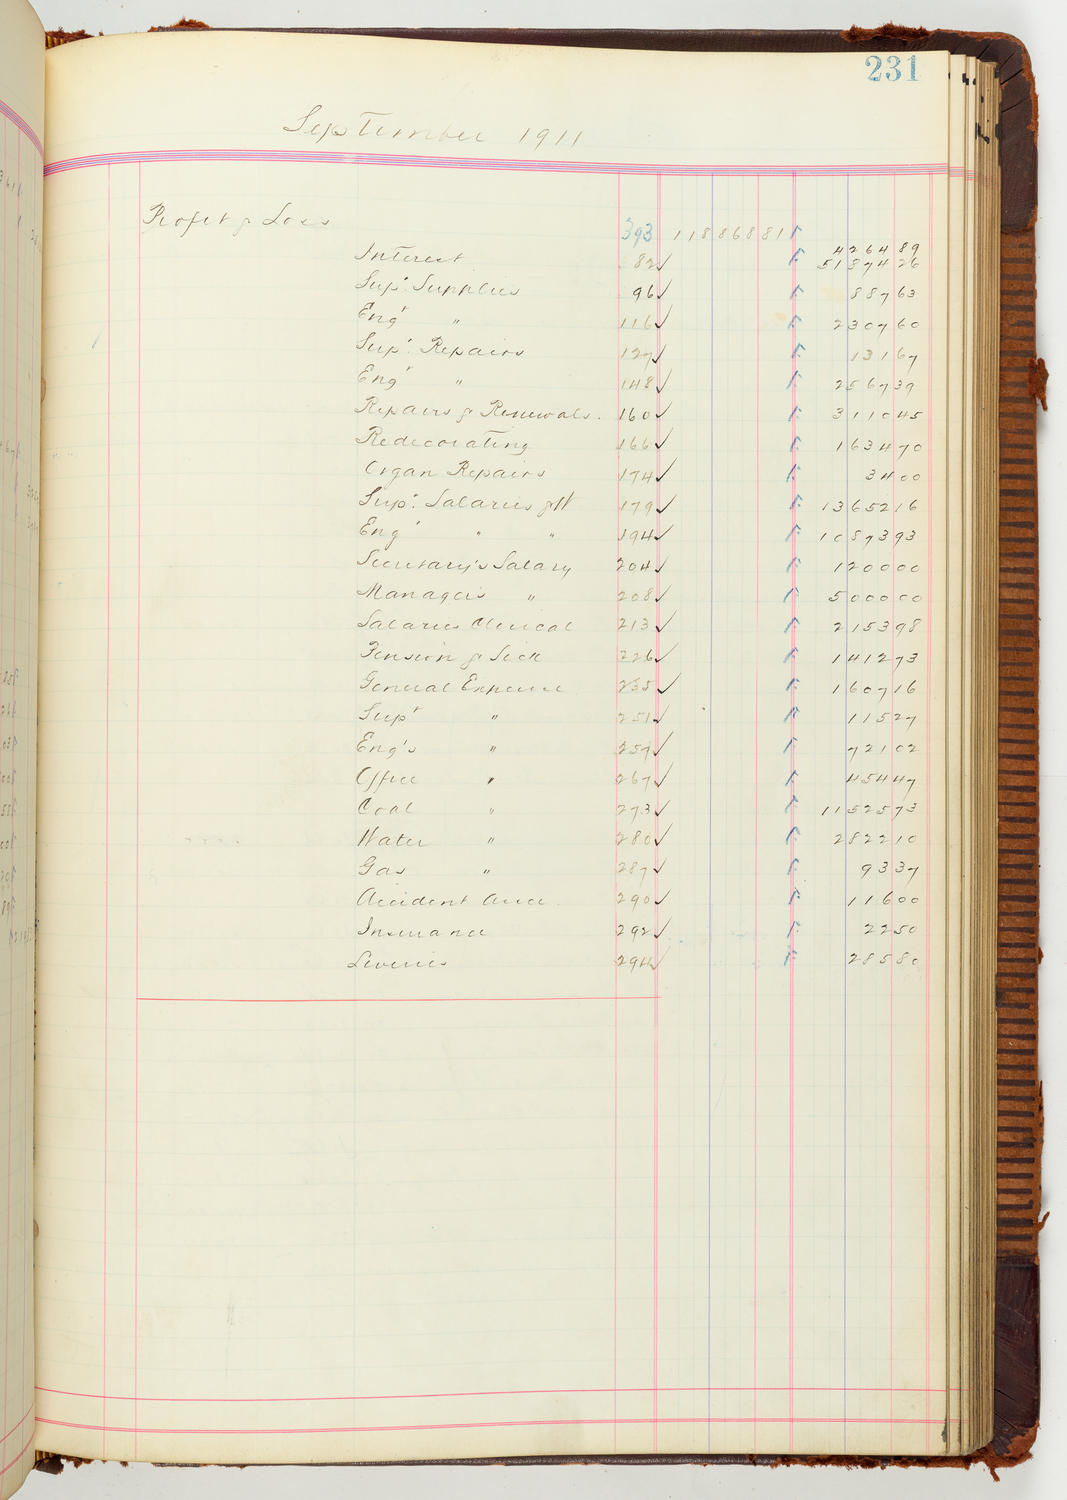 231
September 1911
Profit & Loss 393 11886881
Interest 82 ✓ 426489
5187426
Sup't Supplies 96 ✓ 88763
Eng' " 116 ✓ 230760
Sup't Repairs 127 ✓ 13167
Eng' " 148 ✓ 256739
Repairs & Renewals. 160 ✓ 311045
Redecorating 166 ✓ 163470
Organ Repairs 174 ✓ 3400
Sup't Salaries & W 179 ✓ 1365216
Eng' " " 194 ✓ 1087393
Secretary's Salary 204 ✓ 120000
Managers " 208 ✓ 500000
Salaries Clerical 213 ✓ 215398
Pension & Sick 226 ✓ 141273
General Expense 235 ✓ 160716
Sup't " 251 ✓ 11527
Eng's " 259 ✓ 72102
Office " 267 ✓ 45447
Coal " 273 ✓ 1152573
Water " 280 ✓ 282210
Gas " 287 ✓ 9337
Accident Assn. 290 ✓ 11600
Insurance 292 ✓ 2250
294 ✓ 28580